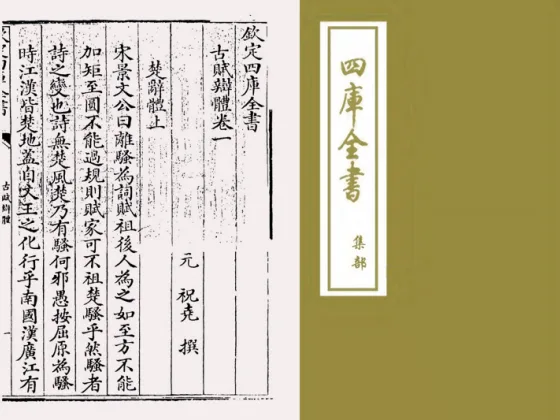 四庫全書
集部
欽定四庫全書
古賦辯體卷一
元 祝堯 撰
楚辭體上
宋景文公曰離騷為詞賦祖後人為之如至方不能
加矩至圓不能過規則賦家可不祖楚騷乎然騷者
詩之變也詩無楚風楚乃有騷何邪愚按屈原為騷
時江漢皆楚地葢自文王之化行乎南國漢廣江有
古賦辯體